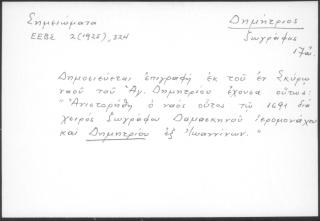 Σημειώματα
Δημήτριος
ΕΕΒΣ 2(1925), 324
ζωγράφος
17 αἰ.
Δημοσιεύεται ἐπιγραφή ἐκ τοῦ ἐν Σκύρῳ
ναοῦ τοῦ Ἁγ. Δημητρίου ἔχουσα οὕτως:
"Ἀνιστορήθη ὁ ναὸς οὗτος τῷ 1691 διὰ
χειρός ζωγράφων Δαμασκηνοῦ ἱερομονάχου
καὶ Δημητρίου ἐξ Ἰωαννίνων."